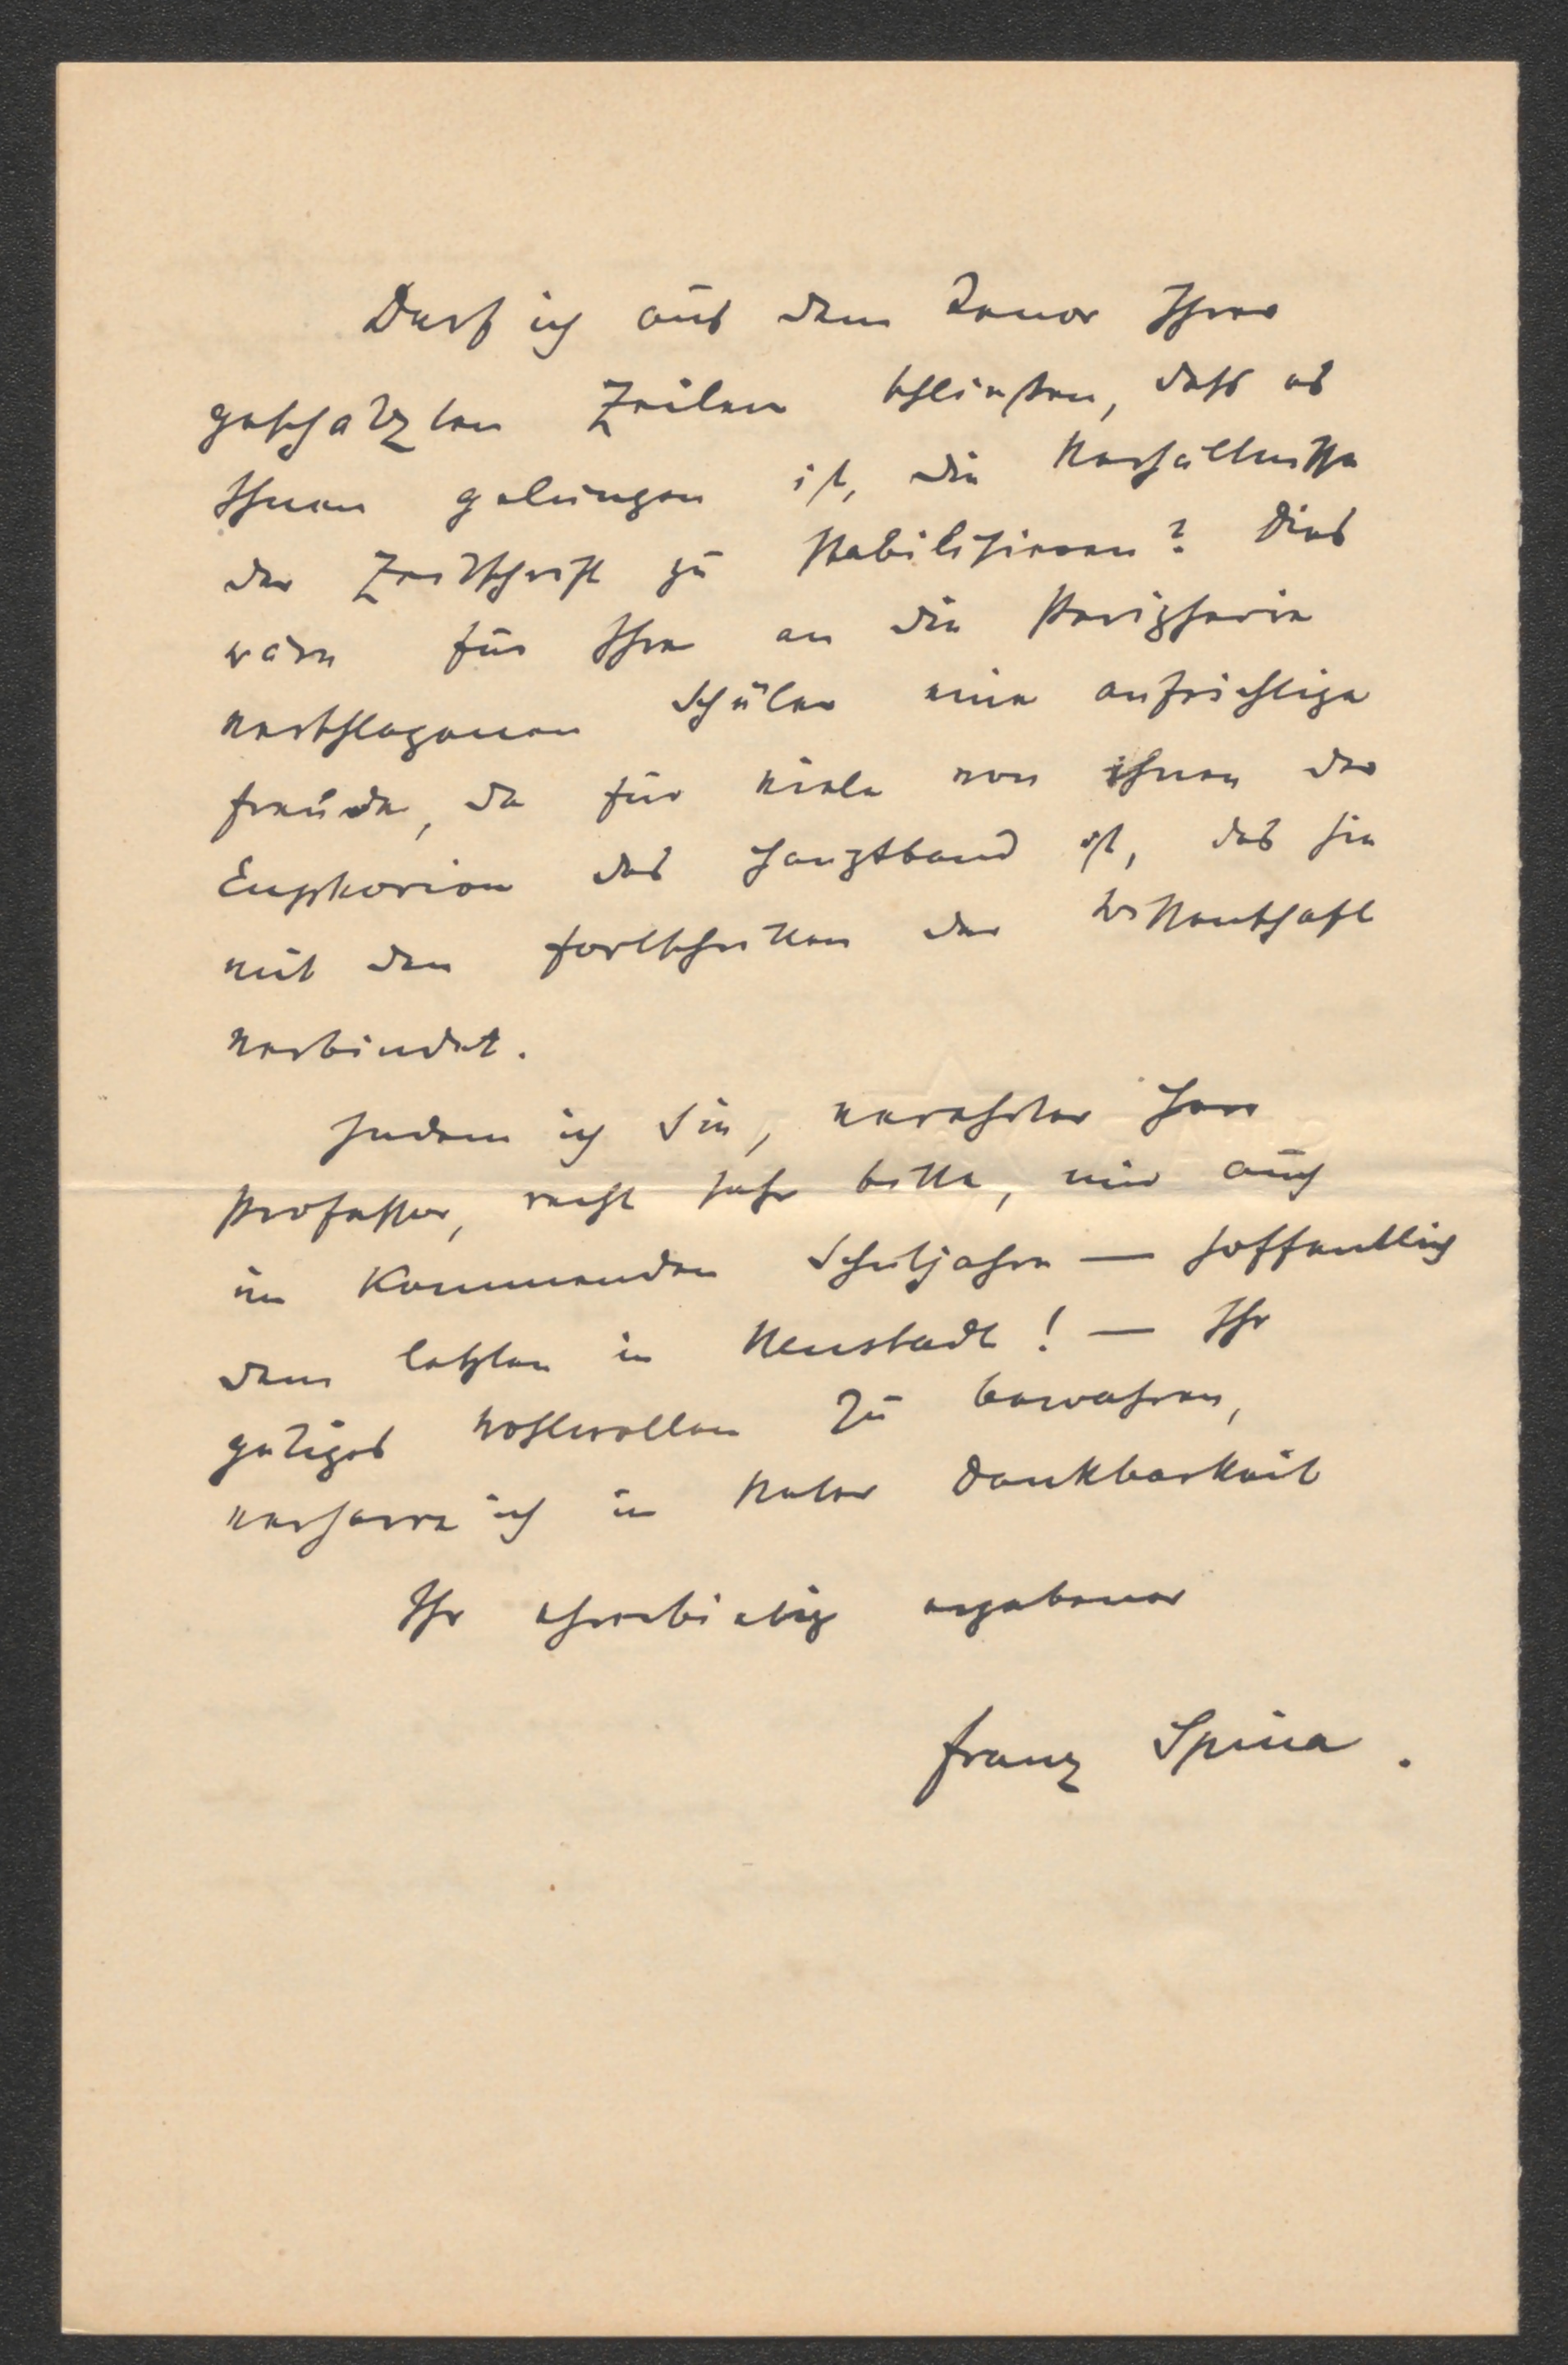 Darf ich aus dem Tenor Ihrer
geschätzten Zeilen schließen, daß es
Ihnen gelungen ist, die Verhältnisse
der Zeitschrift zu stabilisieren? Dies
wäre für Ihre an die Peripherie
verschlagenen Schüler eine aufrichtige
Freude, da für viele von ihnen der
Euphorion das Hauptband ist, das sie
mit den Fortschritten der Wissenschaft
verbindet.
Indem ich Sie, verehrter Herr
Professor, recht sehr bitte, mir auch
im kommenden Schuljahre — hoffentlich
dem letzten in Neustadt! — Ihr
gütiges Wohlwollen zu bewahren,
verharre ich in steter Dankbarkeit
Ihr ehrerbietig ergebener
Franz Spina.